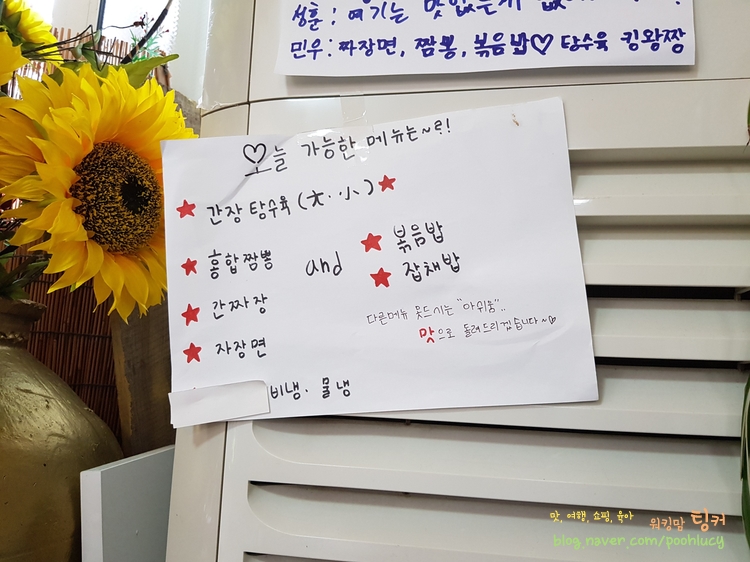 성훈 : 여기는 맛없는게 없
민우 : 짜장면, 짬뽕, 볶음밥♡ 탕수육 킹왕짱
오늘 가능한 메뉴는~?!
★ 간장 탕수육 (大·小) ★
★ 홍합짬뽕 and ★ 볶음밥
★ 잡채밥
★ 간짜장
★ 자장면
다른메뉴 못드시는 "아쉬움"..
맛으로 돌려드리겠습니다~♡
비냉. 물냉
맛, 여행, 쇼핑, 육아 워킹맘 팅커
blog.naver.com/poohlucy